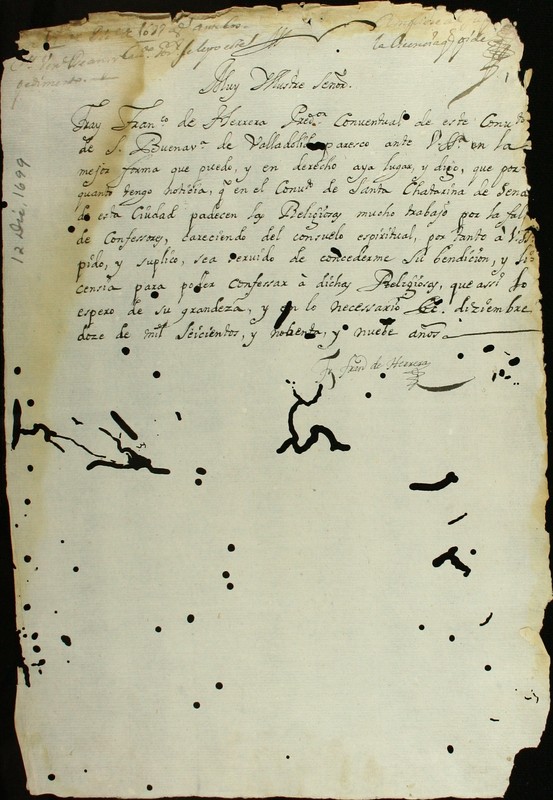 la licencia q̃ pide
pedimento.
Muy Illustre Señor.
Fray Fran.co de Herrera Pred.or Conventual de este Conv.to
de S. Buenav.ra de Valladolid paresco ante V.SSa. en la
mejor forma que puedo, y en derecho aya lugar, y digo, que por
quanto tengo noticia, q̃ en el Conv.to de Santa Chatarina de Sena
de esta Ciudad padecen las Religiosas mucho trabajo por la fal
de Confessores, careciendo del consuelo espiritual, por tanto à V.SSa.
pido, y suplico, sea servido de concederme su bendicion, y li
cencia para poder confessar à dichas Religiosas, que assi lo
espero de su grandeza, y en lo necessario &c. diziembre
doze de mil seicientos, y nobenta, y nuebe años
Fr. Fran.co de Herrera
12 Dic. 1699